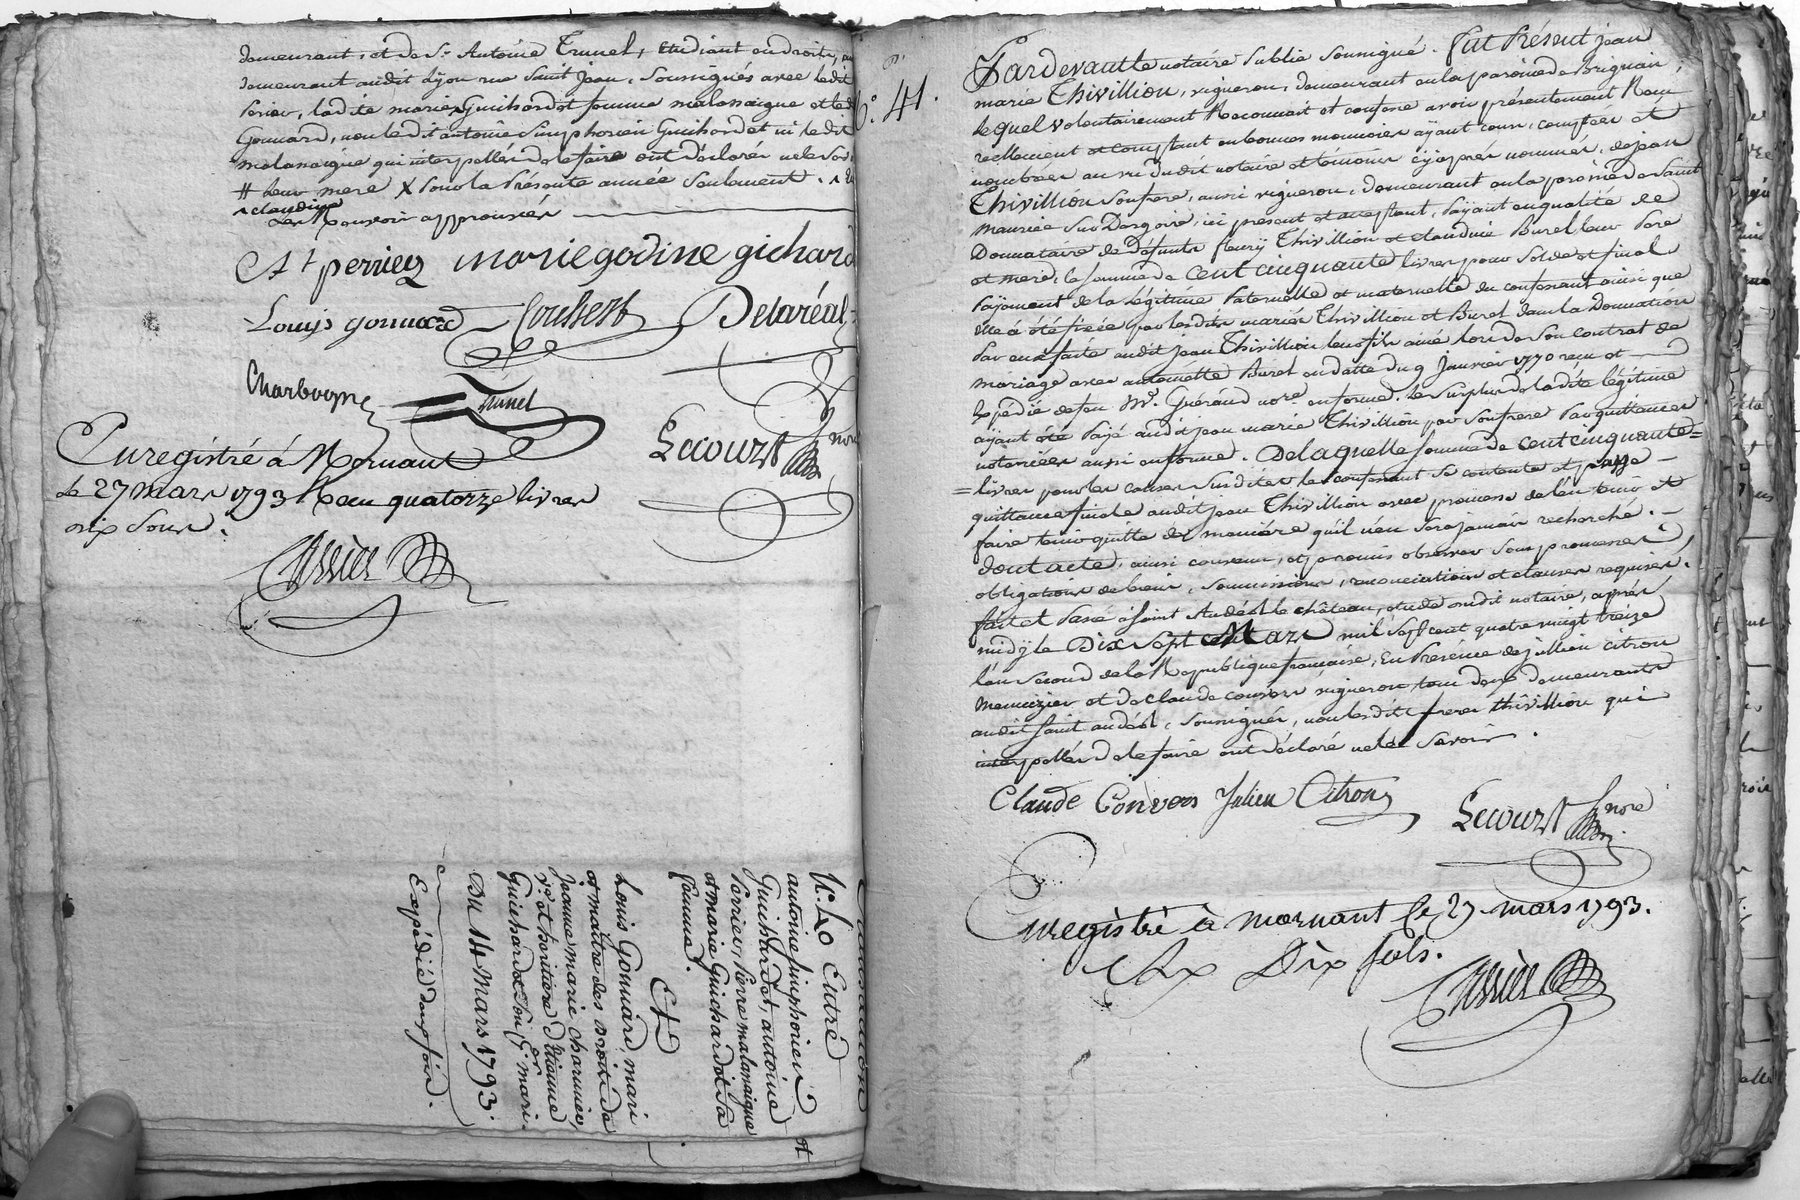 demeurant, et de Sr. Antoine Trunel, etudiant en droits,
demeurant audit Lyon rue Saint Jean, soussignés avec ledit
Perier, ladite marie Guichardot femme malassaigne et led
Gonnard, non ledit antoine Simphorien Guichardot ni ledit
malassaigne qui interpellés de le faire ont déclaré ne le Sav
# leur mere X pour la présente année Seulement.
claudine
les Renvoir approuvés
At perrier marie godine gichard
Louis gonnard Coubert Delaréal
Charbogne Trunel
Lecourt nore
Enregistré à Mornant
le 27 mars 1793 Reçu quatorze livres
dix Sous.
Cassier
N.° 40 Entre
antoine Simphorien
Guichardot, antoine
Perrier, Pierre malassaigne
et marie Guichardot Sa
femme.
Et
Louis Gonnard, mari
et maitre des droits de
Jeanne marie charnier,
ve. et heritiere d'Etienne
Guichardot Son 1er. mari.
Du 14 Mars 1793.
Expédié deux fois.
N.° 41.
Pardevant le notaire Public Soussigné. Fut Présent jean
marie Thivillion, vigneron, demeurant en la paroisse de Brignais,
lequel volontairement Reconnait et confesse avoir présentement Reçu
reellement et comptant en bonnes monnoies ayant cours, comptées et
nombrées au vu dudit notaire et témoins cy après nommés, de jean
Thivillion Son frere, aussi vigneron, demeurant en la paroisse de Saint
Maurice Sur Dargoire, ici présent et acceptant, Payant en qualité de
Donnataire de défunts fleury Thivillion et claudine Burel leur Pere
et mere, la Somme de cent cinquante livres pour Solde et final
Payement de la légitime Paternelle et maternelle du confessant ainsi que
elle a été fixée par lesdits mariés Thivillion et Burel dans la Donnation
Par eux faite audit Jean Thivillion leur fils ainé lors de Son contrat de
Mariage avec antoinette Burel en datte du 9 Janvier 1770 reçu et
Expedié de feu Me. Guéraud nore en forme. Le Surplus de ladite légitime
ayant été Payé audit jean marie Thivillion par Son frere Par quittances
notariées aussi en forme. De laquelle Somme de cent cinquante=
=livres pour les causes Susdites le confessant Se contente et passe
quittance finale audit jean Thivillion avec promesse de l'en tenir et
faire tenir quitte de manière qu'il n'en Sera jamais recherché.
dont acte, ainsi convenu, et promis observer Sous promesses,
obligations de biens, Soumissions, renonciations et clauses requises.
fait et Passé à Saint Andéol le château, etude dudit notaire, après
midy le Dix Sept Mars mil Sept cent quatre vingt treize
l'an Second de la République française, En Présence de jullien citron
Menuizier et de Claude convers vigneron tous deux demeurants
audit Saint andéol, Soussignés, non lesdits freres thivillion qui
interpellés de le faire ont déclaré ne le Savoir.
Claude Convers Julien Citron
Lecourt nore
Enregistré à mornant le 27 mars 1793.
Dix sols.
Cassier